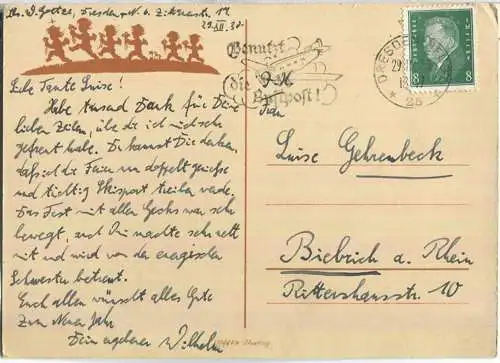 Dresden
29. XII. 32
Liebe Tante Luise!
Habe tausend Dank für Deine
lieben Zeilen, über die ich mich sehr
gefreut habe. Du kannst Dir denken,
daß ich die Ferien nun doppelt genieße
und tüchtig Skisport treiben werde.
Das Fest mit allen Gästen war sehr
bewegt, und
mit und wird von der energischen
Schwester betreut.
Euch allen wünscht alles Gute
zum Neuen Jahr
Dein ergebener Wilhelm
Benutzt
die
Luftpost!
DRESDEN
29
* 28 *
8 8
Luise Gehrenbeck
Biebrich a. Rhein
Rittershausstr. 10